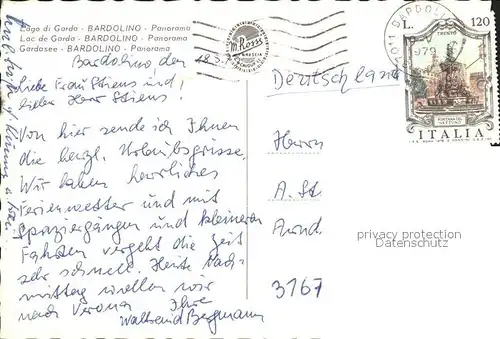 Lago di Garda - BARDOLINO - Panorama
Lac de Garda - BARDOLINO - Panorama
Gardasee - BARDOLINO - Panorama
Bardolino, den
Liebe Frau Stiens und
lieber Herr Stiens!
Von hier sende ich Ihnen
die herzl. Urlaubsgrüsse.
Wir haben herrliches
Ferienwetter und mit
Spaziergängen und kleineren
Fahrten vergeht die Zeit
sehr schnell. Heute nach-
mittag wollen wir
nach Verona Ihre
Waltraud Bergmann
Deutschland
Herrn
A. St
Arnd.
3167
privacy protection
Datenschutz
L. 120
TRENTO
FONTANA DEL
NETTUNO
ITALIA
BARDOLINO